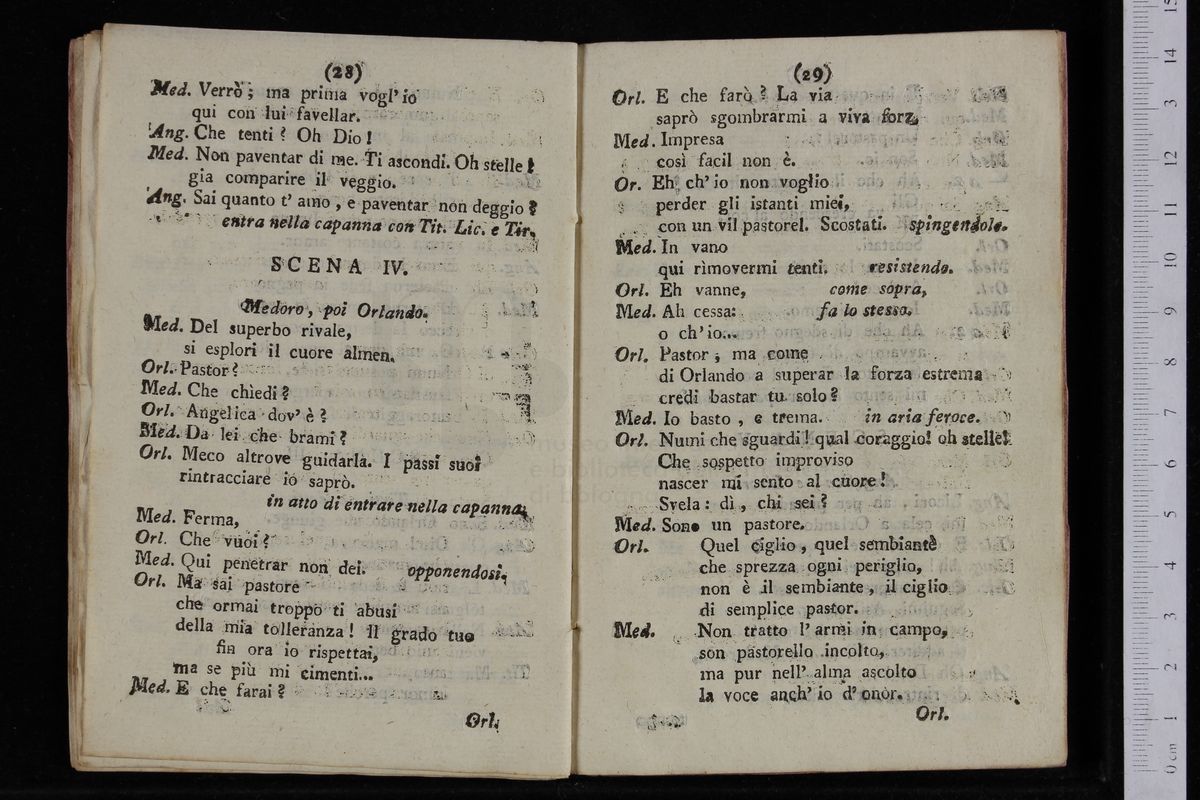 (28)
Med. Verrò; ma prima vogl' io
qui con lui favellar.
Ang. Che tenti? Oh Dio!
Med. Non paventar di me. Ti ascondi. Oh stelle!
gia comparire il veggio.
Ang. Sai quanto t' amo, e paventar non deggio?
entra nella capanna con Tit. Lic. e Tir.
SCENA IV.
Medoro, poi Orlando.
Med. Del superbo rivale,
si esplori il cuore almen.
Orl. Pastor?
Med. Che chiedi?
Orl. Angelica dov' è?
Med. Da lei che brami?
Orl. Meco altrove guidarla. I passi suoi
rintracciare io saprò.
in atto di entrare nella capanna.
Med. Ferma,
Orl. Che vuoi?
Med. Qui penetrar non dei. opponendosi.
Orl. Ma sai pastore
che ormai troppo ti abusi
della mia tolleranza! Il grado tuo
fin ora io rispettai,
ma se più mi cimenti...
Med. E che farai?
Orl.
(29)
Orl. E che farò? La via
saprò sgombrarmi a viva forz.
Med. Impresa
così facil non è.
Or. Eh ch' io non voglio
perder gli istanti miei,
con un vil pastorel. Scostati. spingendolo.
Med. In vano
qui rimovermi tenti. resistendo.
Orl. Eh vanne, come sopra,
Med. Ah cessa: fa lo stesso.
o ch' io...
Orl. Pastor; ma come
di Orlando a superar la forza estrema
credi bastar tu solo?
Med. Io basto, e trema. in aria feroce.
Orl. Numi che sguardi! qual coraggio! oh stelle!
Che sospetto improviso
nascer mi sento al cuore!
Svela: dì, chi sei?
Med. Sono un pastore.
Orl. Quel ciglio, quel sembiante
che sprezza ogni periglio,
non è il sembiante, il ciglio
di semplice pastor.
Med. Non tratto l' armi in campo,
son pastorello incolto,
ma pur nell' alma ascolto
la voce anch' io d' onor.
Orl.
0 cm 1 2 3 4 5 6 7 8 9 10 11 12 13 14 15